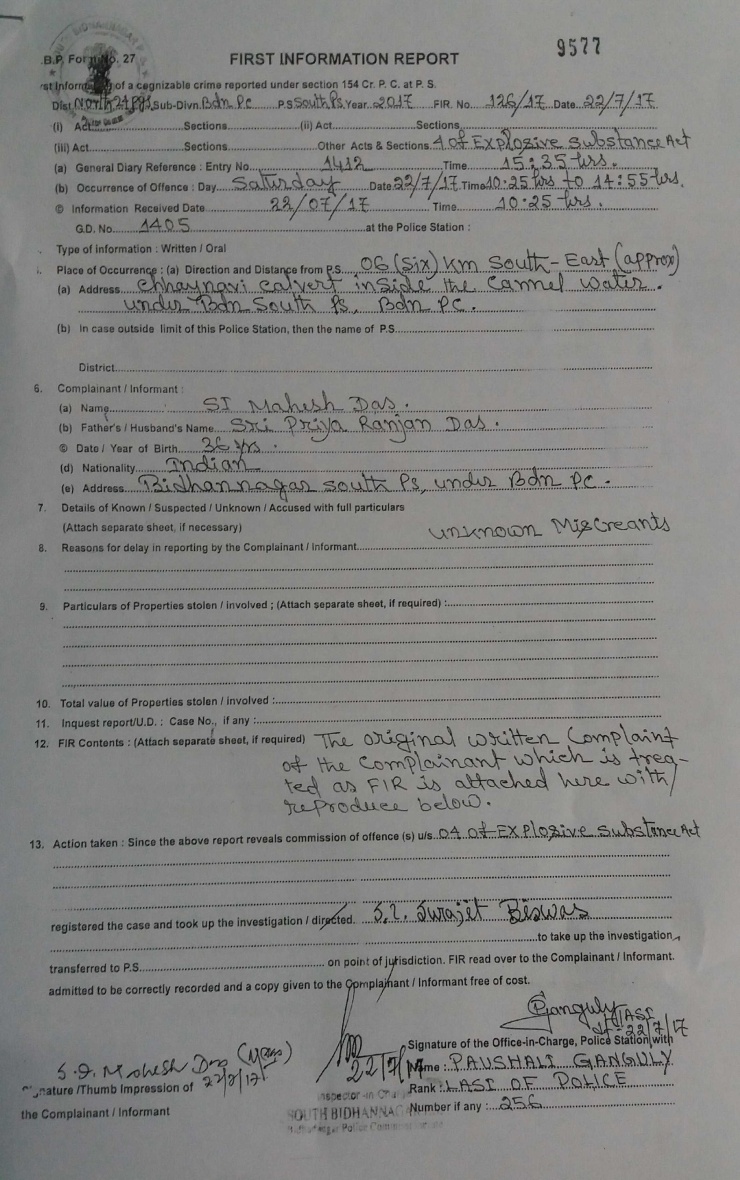 9577
B.P. Form No. 27
FIRST INFORMATION REPORT
st Inform of a cognizable crime reported under section 154 Cr. P. C. at P. S.
Dist North 24 Pgs. Sub-Divn. Bdn Pc P.S. South Ps. Year 2017 FIR. No. 126/17 Date 22/7/17
(i) Act Sections (ii) Act Sections
(iii) Act Sections Other Acts & Sections 4 of Explosive Substance Act
(a) General Diary Reference : Entry No. 1412 Time 15:35 hrs.
(b) Occurrence of Offence : Day Saturday Date 22/7/17 Time 10:25 hrs to 14:55 hrs.
© Information Received Date 22/07/17 Time 10:25 hrs.
G.D. No. 1405 at the Police Station :
Type of information : Written / Oral
Place of Occurrence : (a) Direction and Distance from P.S. 06 (Six) Km South-East (approx)
(a) Address Chhaynavi calvert inside the Cannel water.
under Bdn South Ps, Bdn PC.
(b) In case outside limit of this Police Station, then the name of P.S.
District
6. Complainant / Informant :
(a) Name SI Mahesh Das.
(b) Father's / Husband's Name Sri Priya Ranjan Das.
© Date / Year of Birth 36 yrs.
(d) Nationality Indian
(e) Address Bidhannagar South Ps, under Bdn PC.
7. Details of Known / Suspected / Unknown / Accused with full particulars
(Attach separate sheet, if necessary) unknown Miscreants
8. Reasons for delay in reporting by the Complainant / informant
9. Particulars of Properties stolen / involved ; (Attach separate sheet, if required) :
10. Total value of Properties stolen / involved :
11. Inquest report/U.D. : Case No., if any :
12. FIR Contents : (Attach separate sheet, if required) The original written Complaint
of the Complainant which is trea-
ted as FIR is attached here with/
reproduce below.
13. Action taken : Since the above report reveals commission of offence (s) u/s 04 of Explosive Substance Act
registered the case and took up the investigation / directed. S.I. Surajit Biswas
to take up the investigation,
transferred to P.S. on point of jurisdiction. FIR read over to the Complainant / Informant.
admitted to be correctly recorded and a copy given to the Complainant / Informant free of cost.
Ganguly LASI
22/7/17
Signature of the Office-in-Charge, Police Station with
S.I. Mahesh Das
22/7/17
22/7/17
Name : PAUSHALI GANGULY
nature /Thumb Impression of
Rank : LASI OF POLICE
the Complainant / Informant
Number if any : 256
SOUTH BIDHANNAG